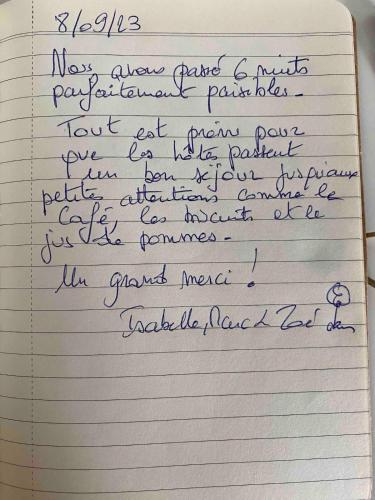 8/09/23
Nous avons passé 6 nuits
parfaitement paisibles.
Tout est prévu pour
que les hôtes passent
un bon séjour jusqu'aux
petites attentions comme le
café, les biscuits et le
jus de pommes.
Un grand merci !
Isabelle, Marc & Zoé